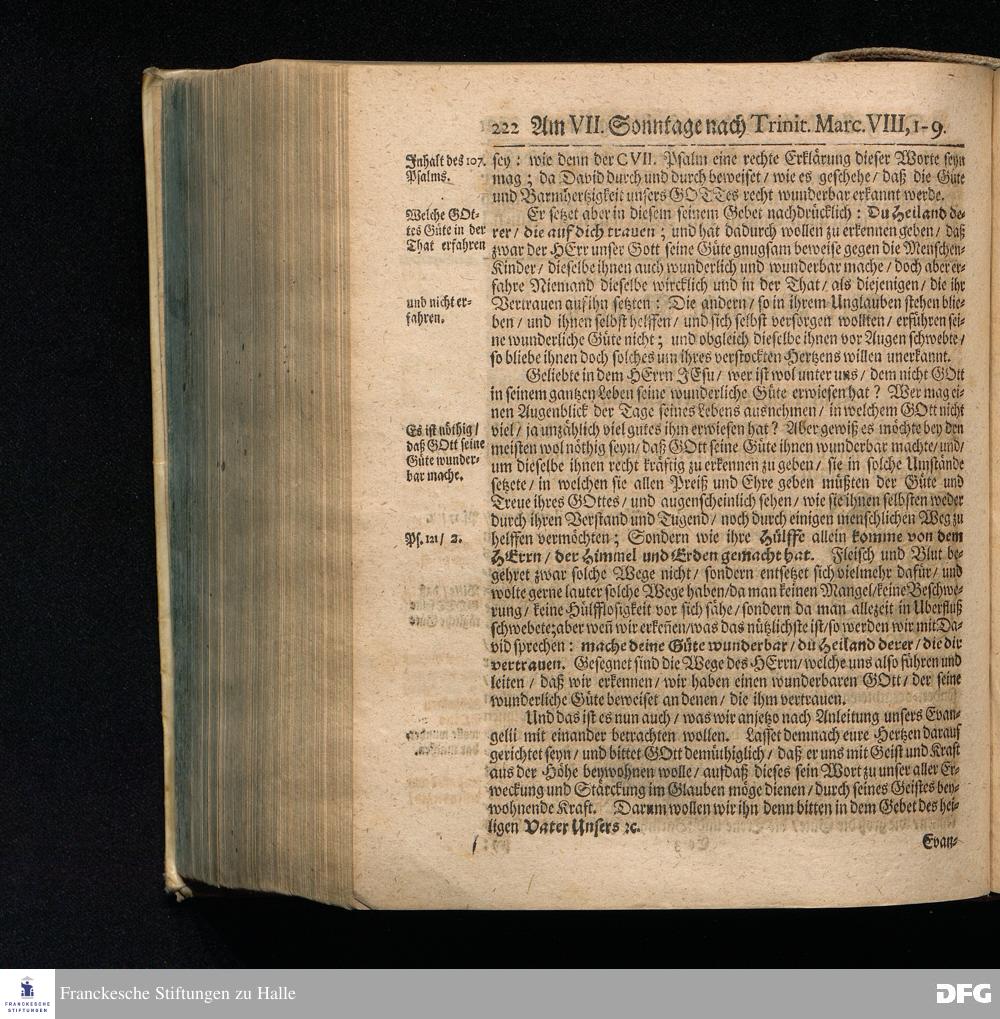 222 Am VII. Sonntage nach Trinit. Marc. VIII, 1-9.
Inhalt des 107. Psalms.
sey : wie denn der CVII. Psalm eine rechte Erklärung dieser Worte seyn
mag ; da David durch und durch beweiset / wie es geschehe / daß die Güte
und Barmhertzigkeit unsers GOTTes recht wunderbar erkannt werde.
Welche GOt-
tes Güte in der
That erfahren
Er setzet aber in diesem seinem Gebet nachdrücklich : Du Heiland de-
rer / die auf dich trauen ; und hat dadurch wollen zu erkennen geben / daß
zwar der HErr unser Gott seine Güte gnugsam beweise gegen die Menschen-
Kinder / dieselbe ihnen auch wunderlich und wunderbar mache / doch aber er-
fahre Niemand dieselbe wircklich und in der That / als diejenigen / die ihr
und nicht er-
fahren.
Vertrauen auf ihn setzten : Die andern / so in ihrem Unglauben stehen blie-
ben / und ihnen selbst helffen / und sich selbst versorgen wollten / erführen sei-
ne wunderliche Güte nicht ; und obgleich dieselbe ihnen vor Augen schwebte /
so bliebe ihnen doch solches um ihres verstockten Hertzens willen unerkannt.
Geliebte in dem HErrn JEsu / wer ist wol unter uns / dem nicht GOtt
in seinem gantzen Leben seine wunderliche Güte erwiesen hat ? Wer mag ei-
nen Augenblick der Tage seines Lebens ausnehmen / in welchem GOtt nicht
Es ist nöthig /
daß GOtt seine
Güte wunder-
bar mache.
viel / ja unzählich viel gutes ihm erwiesen hat ? Aber gewiß es möchte bey den
meisten wol nöthig seyn / daß GOtt seine Güte ihnen wunderbar machte / und /
um dieselbe ihnen recht kräftig zu erkennen zu geben / sie in solche Umstände
setzete / in welchen sie allen Preiß und Ehre geben müßten der Güte und
Treue ihres GOttes / und augenscheinlich sehen / wie sie ihnen selbsten weder
durch ihren Verstand und Tugend / noch durch einigen menschlichen Weg zu
Ps. 121 / 2.
helffen vermöchten ; Sondern wie ihre Hülffe allein komme von dem
HErrn / der Himmel und Erden gemacht hat. Fleisch und Blut be-
gehret zwar solche Wege nicht / sondern entsetzet sich vielmehr dafür / und
wolte gerne lauter solche Wege haben / da man keinen Mangel / keine Beschwe-
rung / keine Hülfflosigkeit vor sich sähe / sondern da man allezeit in Uberfluß
schwebete; aber weñ wir erkeñen / was das nützlichste ist / so werden wir mit Da-
vid sprechen : mache deine Güte wunderbar / du Heiland derer / die dir
vertrauen. Gesegnet sind die Wege des HErrn / welche uns also führen und
leiten / daß wir erkennen / wir haben einen wunderbaren GOtt / der seine
wunderliche Güte beweiset an denen / die ihm vertrauen.
Und das ist es nun auch / was wir anjetzo nach Anleitung unsers Evan-
gelii mit einander betrachten wollen. Lasset demnach eure Hertzen darauf
gerichtet seyn / und bittet GOtt demüthiglich / daß er uns mit Geist und Kraft
aus der Höhe beywohnen wolle / aufdaß dieses sein Wort zu unser aller Er-
weckung und Stärckung im Glauben möge dienen / durch seines Geistes bey-
wohnende Kraft. Darum wollen wir ihn denn bitten in dem Gebet des hei-
ligen Vater Unsers ꝛc.
Evan-
FRANCKESCHE
STIFTUNGEN
Franckesche Stiftungen zu Halle
DFG